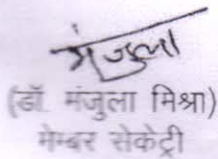 मंजुला
(डॉ. मंजुला मिश्रा)
मेम्बर सेकेट्री